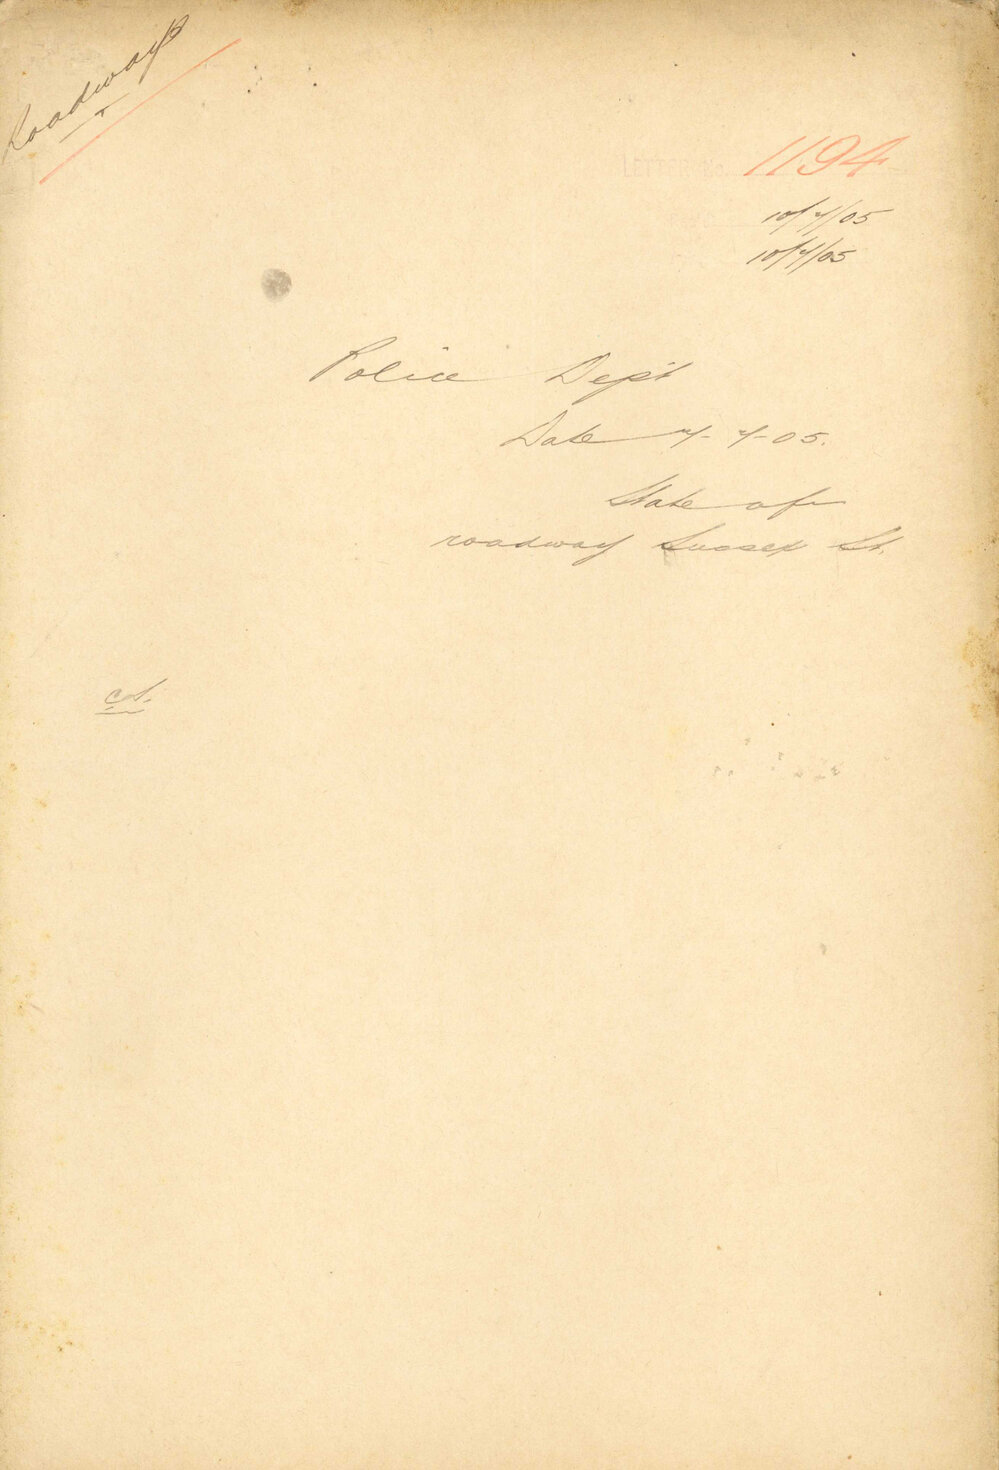 Roadways
LETTER No. 1194
10/7/05
10/7/05
Police Dept
Date 7-7-05.
State of
roadway Sussex St.